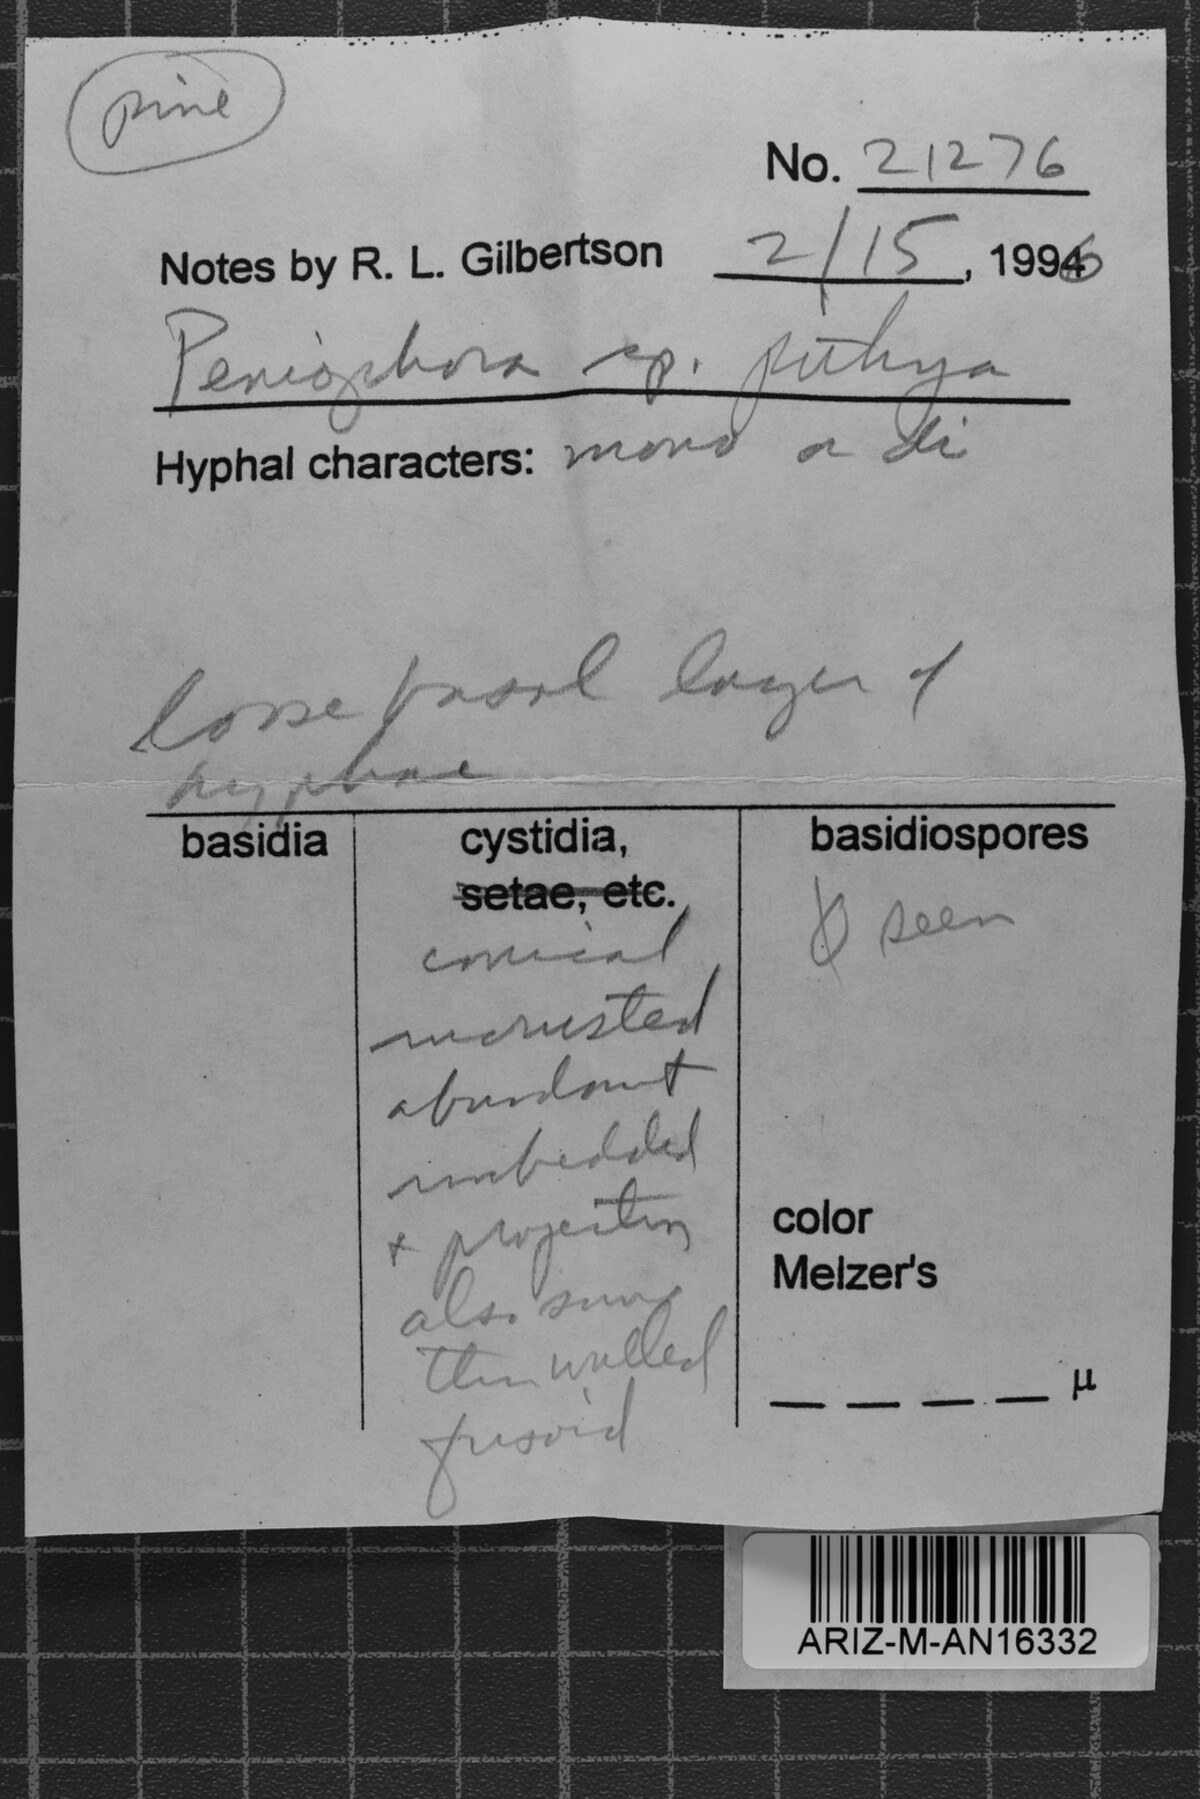 pine
No. 21276
Notes by R. L. Gilbertson 2/15, 1996
Peniophora sp. pithya
Hyphal characters: mono or di
loose basal layer of
hyphae
basidia
cystidia,
setae, etc.
conical
incrusted
abundant
imbedded
+ projecting
also some
thin walled
fusoid
basidiospores
0 seen
color
Melzer's
_ _ _ _ μ
ARIZ-M-AN16332